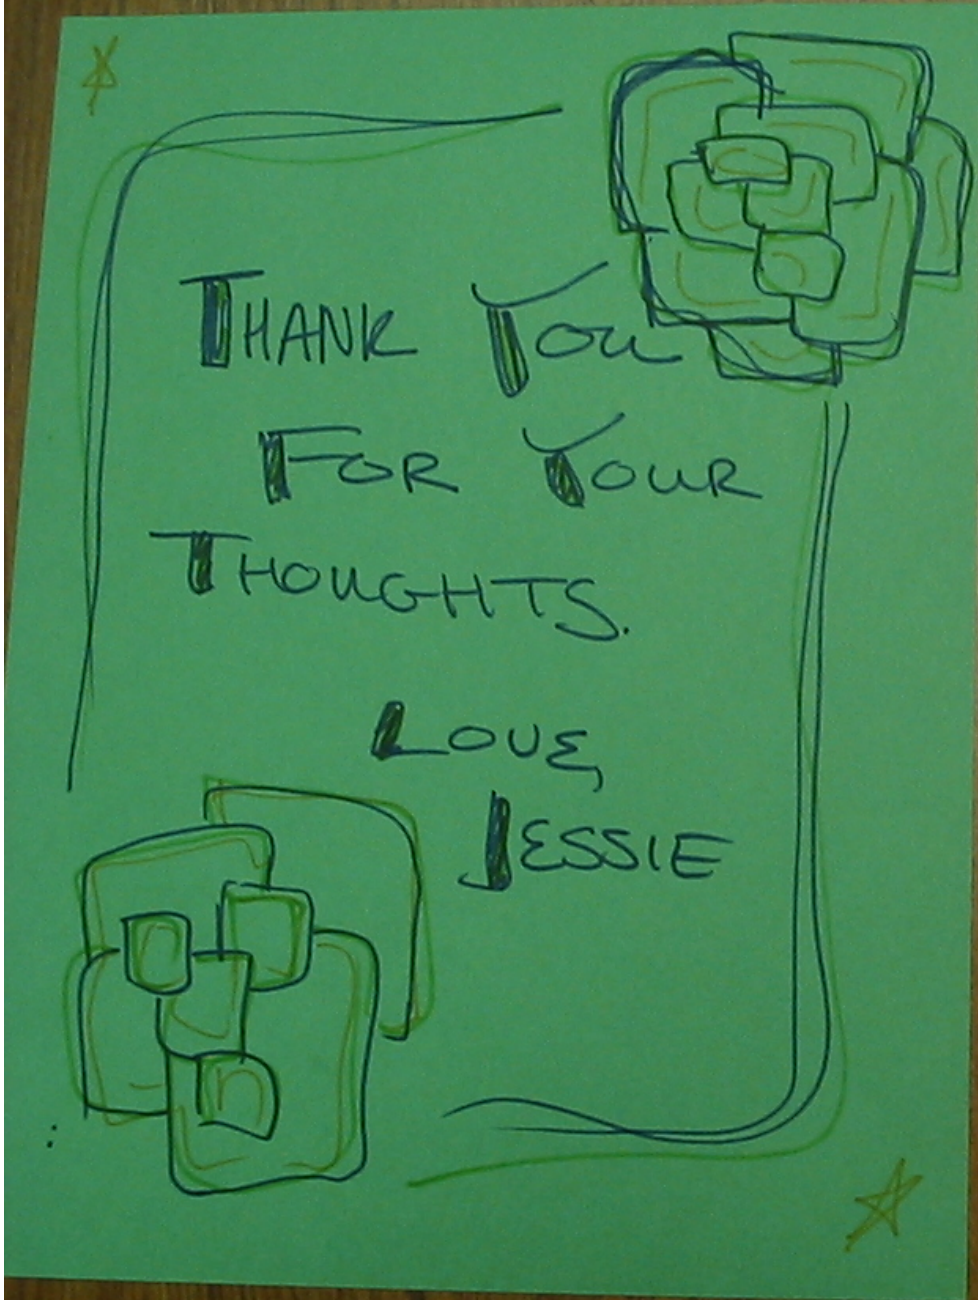 THANK YOU
FOR YOUR
THOUGHTS.
LOVE,
JESSIE